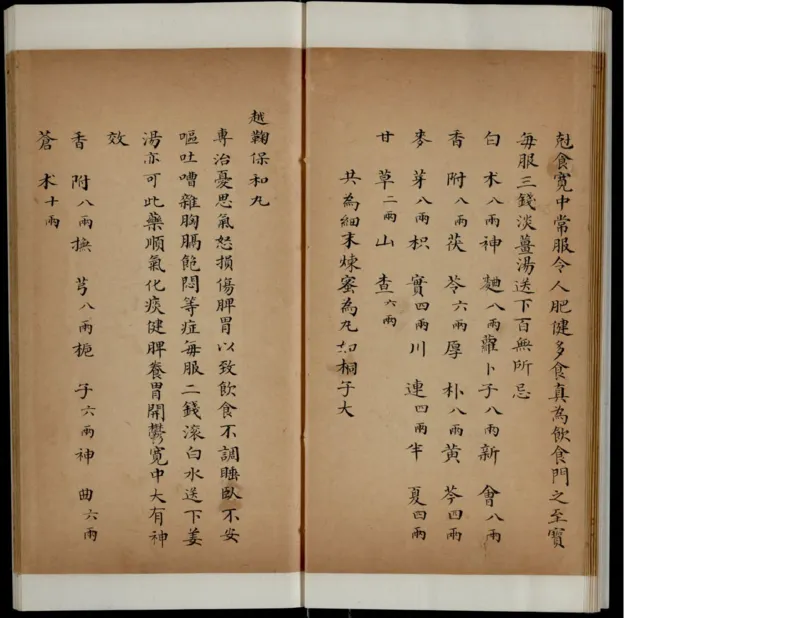 尅食寛中常服令人肥健多食真為飲食門之至寳
每服三錢淡薑湯送下百無所忌
白术八兩神麯八兩蘿卜子八兩新會八兩
香附八兩茯苓六兩厚朴八兩黄芩四兩
麥芽八兩枳實四兩川連四兩半夏四兩
甘草二兩山查六兩
共為細末煉蜜為丸如桐子大
越鞠保和丸
專治憂思氣怒損傷脾胃以致飲食不調睡臥不安
嘔吐嘈雜胸膈飽悶等症每服二錢滚白水送下姜
湯亦可此藥順氣化痰健脾養胃開鬱寛中大有神
效
香附八兩撫芎八兩栀子六兩神曲六兩
蒼术十兩